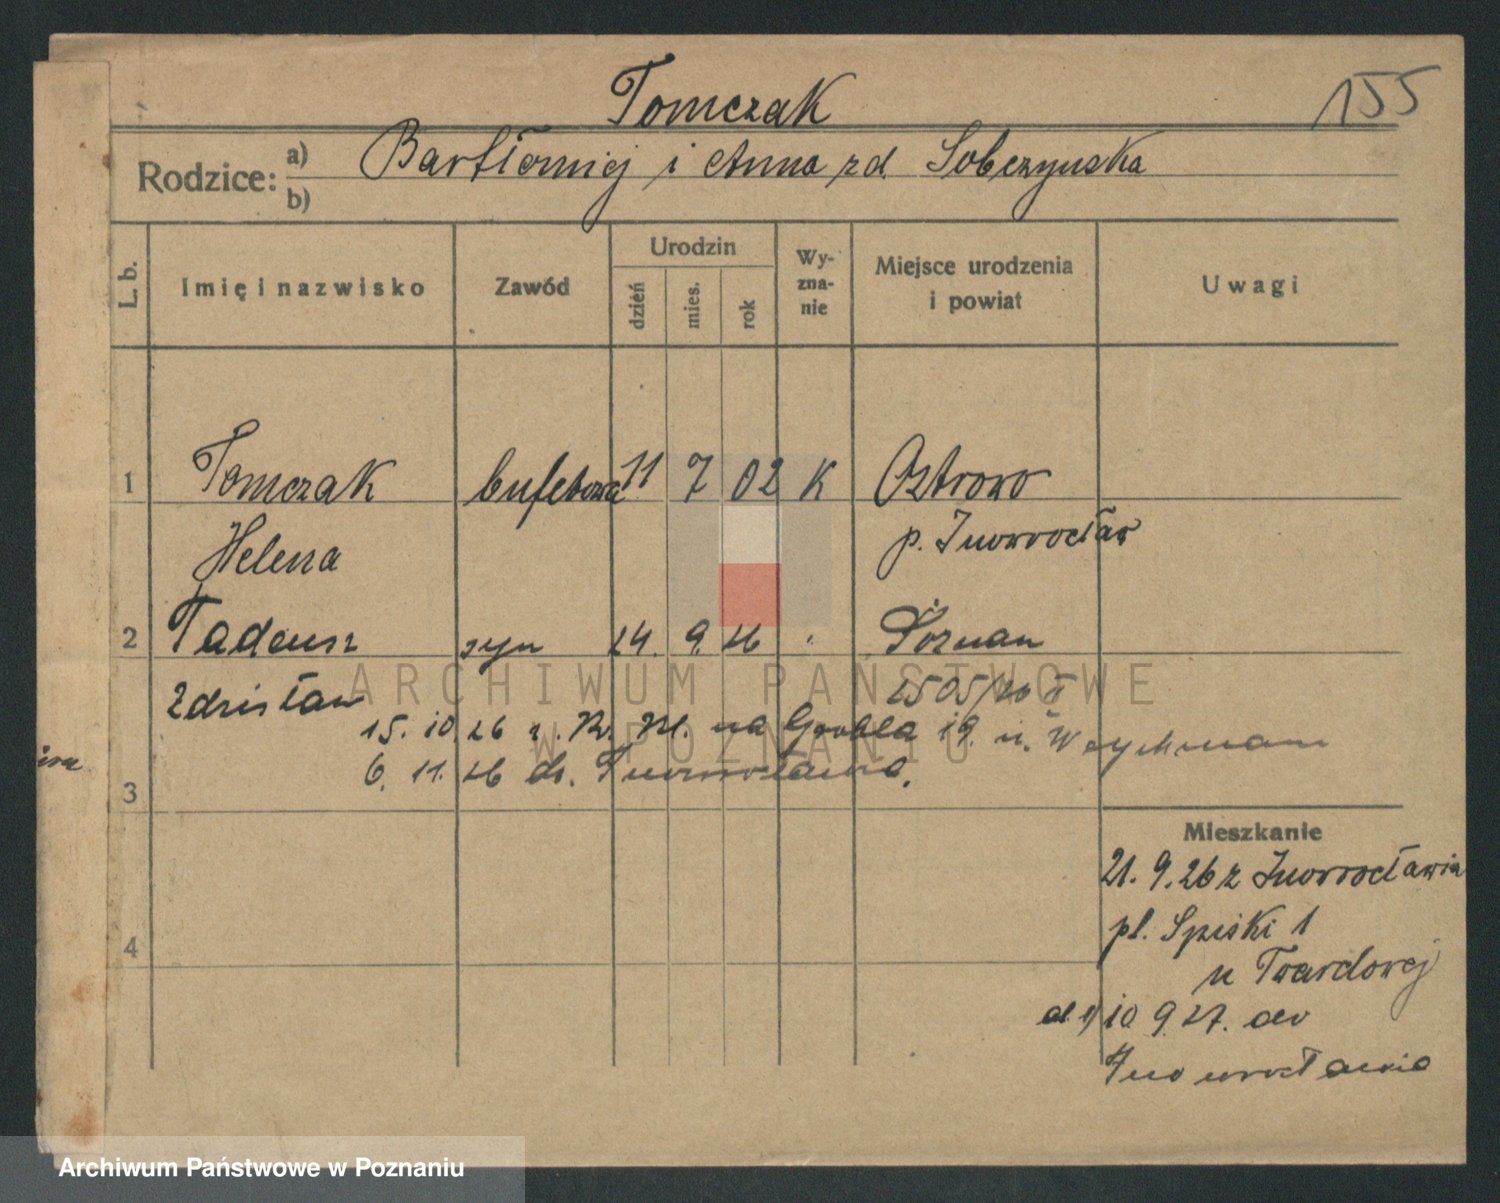 Tomczak
155
Rodzice: a) b)
Bartłomiej i Anna zd. Sobczynska
L. b.
Imię i nazwisko
Zawód
Urodzin
dzień
mies.
rok
Wy-
zna-
nie
Miejsce urodzenia
i powiat
Uwagi
1 Tomczak bufetowa 11 7 02 K Ostrowo
Helena p. Inowrocław
2 Tadeusz syn 24. 9. 26 Poznan
Zdzisław 2505/26
15. 10. 26 na Grobla 19. u. Weychmann
6. 11. 26 do Inowrocławia.
3
Mieszkanie
21. 9. 26 z Inowrocławia
pl. Spiski 1
4
u Twardowej
ad. 1) 10 9. 27. do
Inowrocławia
ARCHIWUM PAŃSTWOWE
W POZNANIU
Archiwum Państwowe w Poznaniu